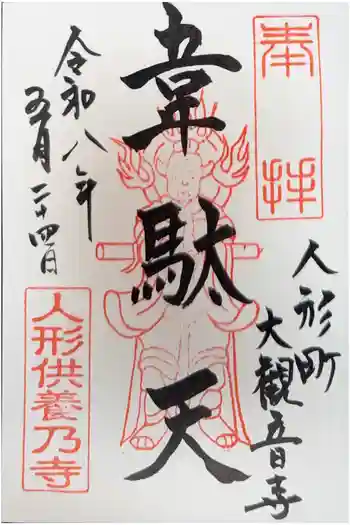 奉拝
人形町
大観音寺
韋駄天
令和八年
五月二十四日
人形供養乃寺